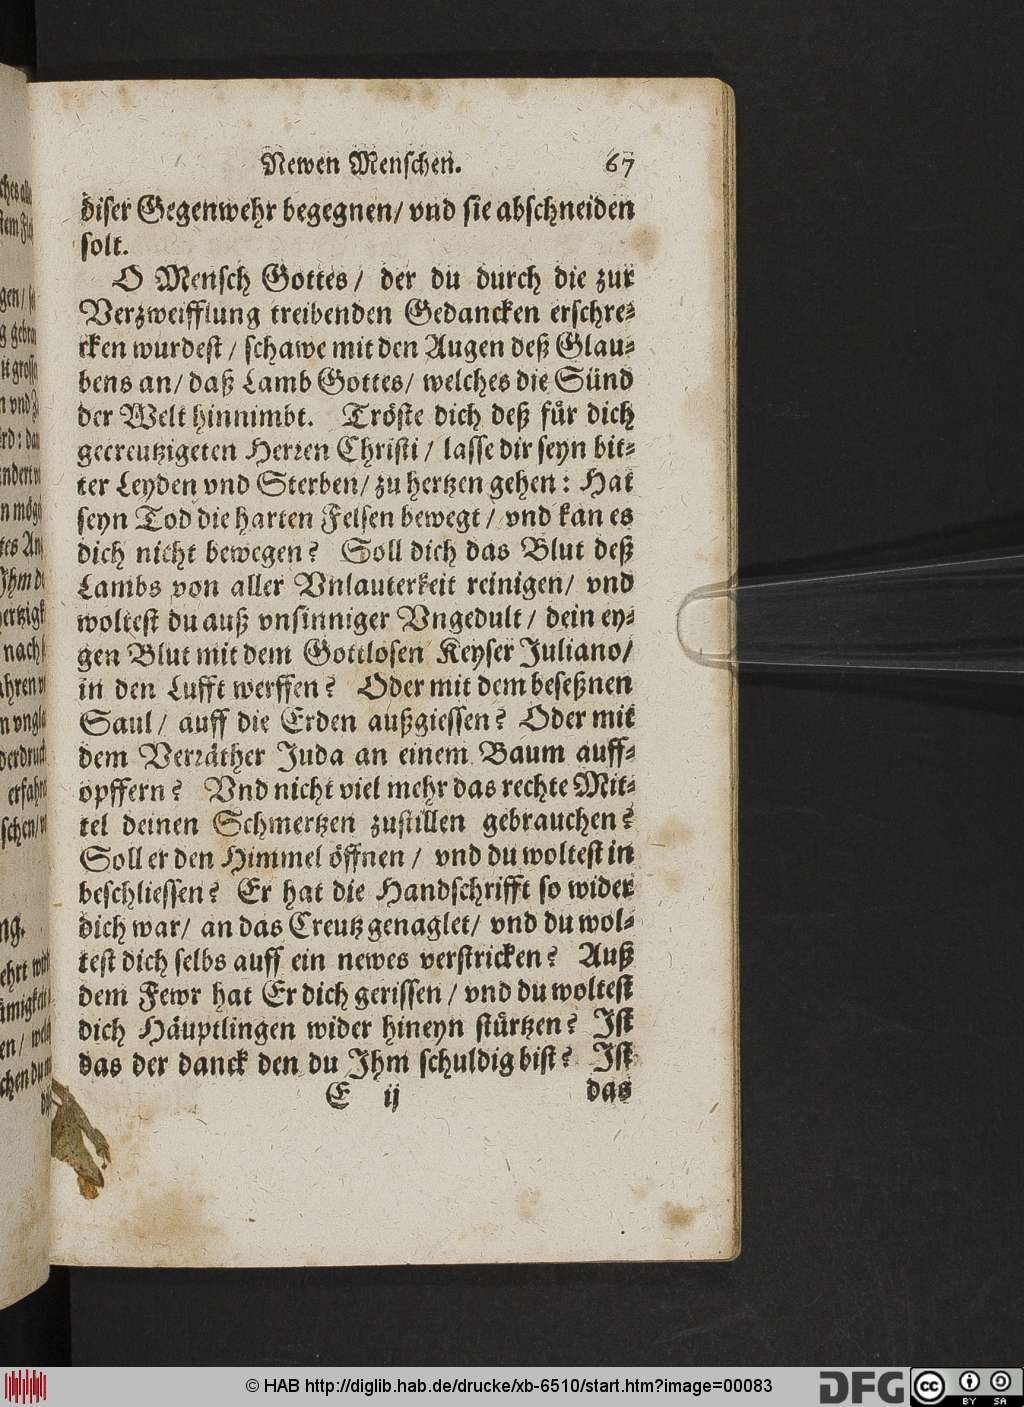 Newen Menschen. 67
diser Gegenwehr begegnen/ vnd sie abschneiden
solt.
O Mensch Gottes/ der du durch die zur
Verzweifflung treibenden Gedancken erschre-
cken wurdest/ schawe mit den Augen deß Glau-
bens an/ daß Lamb Gottes/ welches die Sünd
der Welt hinnimbt. Tröste dich deß für dich
gecreutzigeten Herren Christi/ lasse dir seyn bit-
ter Leyden vnd Sterben/ zu hertzen gehen: Hat
seyn Tod die harten Felsen bewegt/ vnd kan es
dich nicht bewegen? Soll dich das Blut deß
Lambs von aller Vnlauterkeit reinigen/ vnd
woltest du auß vnsinniger Vngedult/ dein ey-
gen Blut mit dem Gottlosen Keyser Juliano/
in den Lufft werffen? Oder mit dem beseßnen
Saul/ auff die Erden außgiessen? Oder mit
dem Verräther Juda an einem Baum auff-
opffern? Vnd nicht viel mehr das rechte Mit-
tel deinen Schmertzen zustillen gebrauchen?
Soll er den Himmel öffnen/ vnd du woltest in
beschliessen? Er hat die Handschrifft so wider
dich war/ an das Creutz genaglet/ vnd du wol-
test dich selbs auff ein newes verstricken? Auß
dem Fewr hat Er dich gerissen/ vnd du woltest
dich Häuptlingen wider hineyn stürtzen? Ist
das der danck den du Ihm schuldig bist? Ist
E ij das
© HAB http://diglib.hab.de/drucke/xb-6510/start.htm?image=00083
DFG
cc BY SA